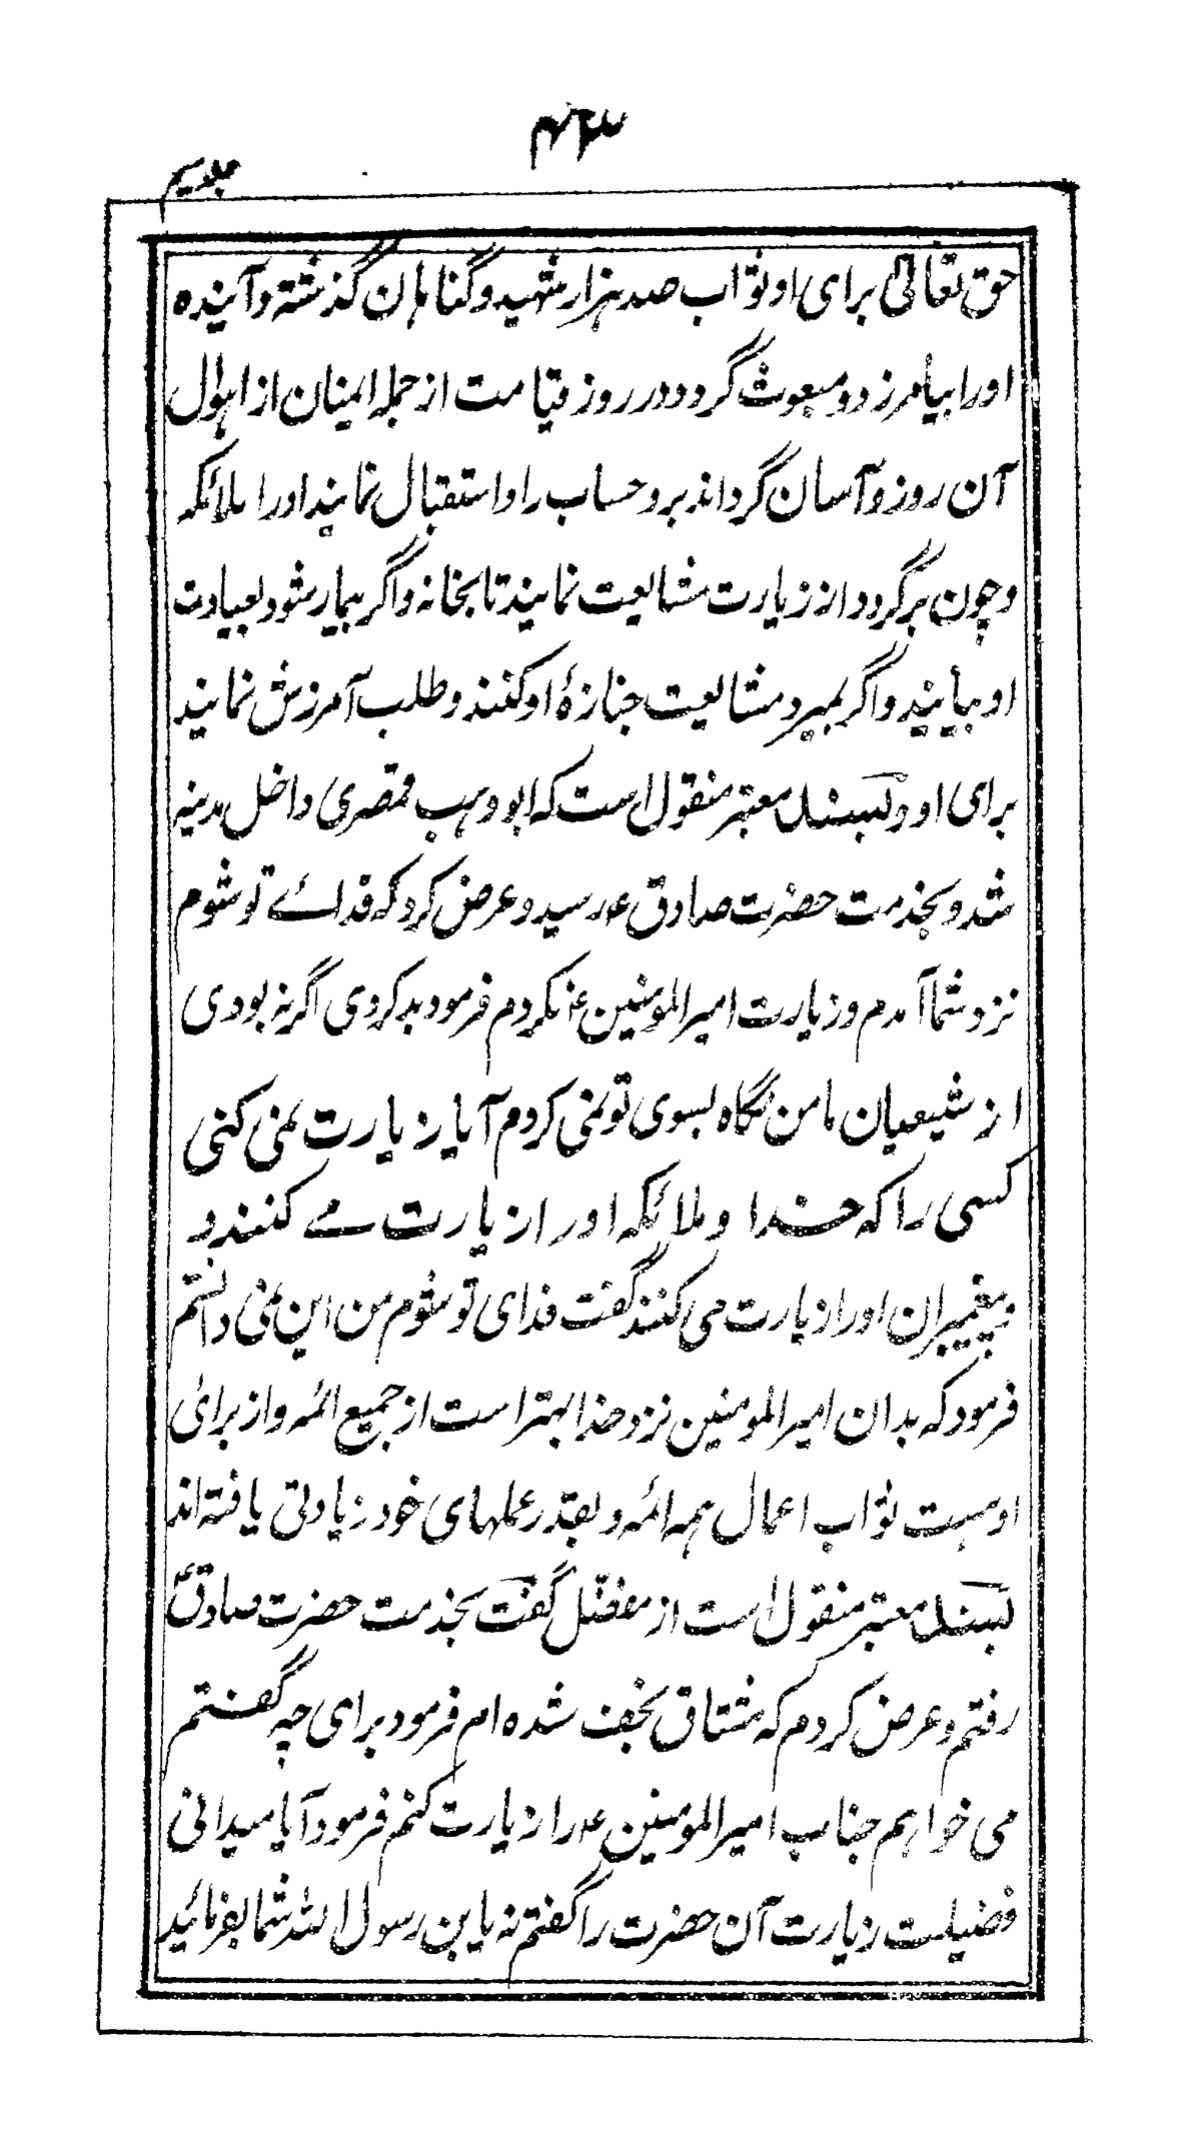 ۴۶۳
جلد سیم
حق تعالیٰ برای او ثواب صد هزار شهید و گناهان گذشته و آینده
او را بیامرزد و مبعوث گردد در روز قیامت از جمله ایمنان از اهوال
آن روز و آسان گرداند برو حساب را و استقبال نمایند او را ملائکه
و چون برگردد از زیارت مشایعت نمایند تا بخانه و اگر بیمار شود بعیادت
او بیایند و اگر بمیرد مشایعت جنازهٔ او کنند و طلب آمرزش نمایند
برای او و بسند معتبر منقول است که ابو وهب قصری داخل مدینه
شد و بخدمت حضرت صادق ع رسید و عرض کرد که فدائے تو شوم
نزد شما آمدم و زیارت امیر المومنین ع نکردم فرمود بد کردی اگر نه بودی
از شیعیان ما من نگاه بسوی تو نمی کردم آیا زیارت نمی کنی
کسی را که خدا و ملائکه او را زیارت مے کنند و
و پیغمبران او را زیارت می کنند گفت فدای تو شوم من این نمی دانستم
فرمود که بدان امیر المومنین نزد خدا بهتر است از جمیع ائمه و از برائ
او هست ثواب اعمال همه ائمه و بقدر عملهای خود زیادتی یافته اند
بسند معتبر منقول است از مفضّل گفت بخدمت حضرت صادقؑ
رفتم و عرض کردم که مشتاق نجف شده ام فرمود برای چه گفتم
می خواهم جناب امیر المومنین ع را زیارت کنم فرمود آیا میدانی
فضیلت زیارت آن حضرت را گفتم نه یا بن رسول الله شما بفرمائید